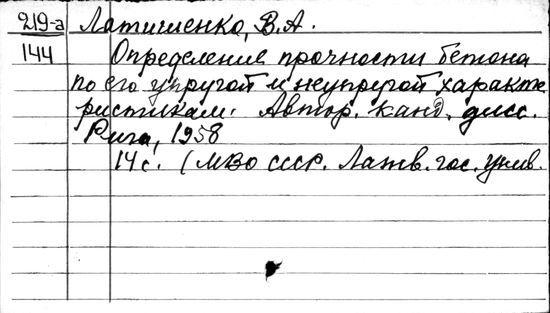 219-а Латишенко, В.А.
144 Определение прочности бетона
по его упругой и неупругой характе
ристикам. Автор. канд. дисс.
Рига, 1958
14 с. (МВО СССР. Латв. гос. унив.